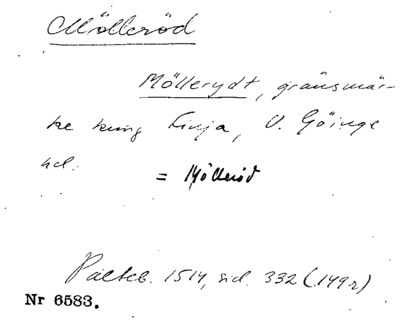 Mölleröd
Möllerydt, gränsmär-
ke kring Finja, V. Göinge
hd.
= Mölleröd
Pälteb. 1514, sid. 332 (149r)
Nr 6583.